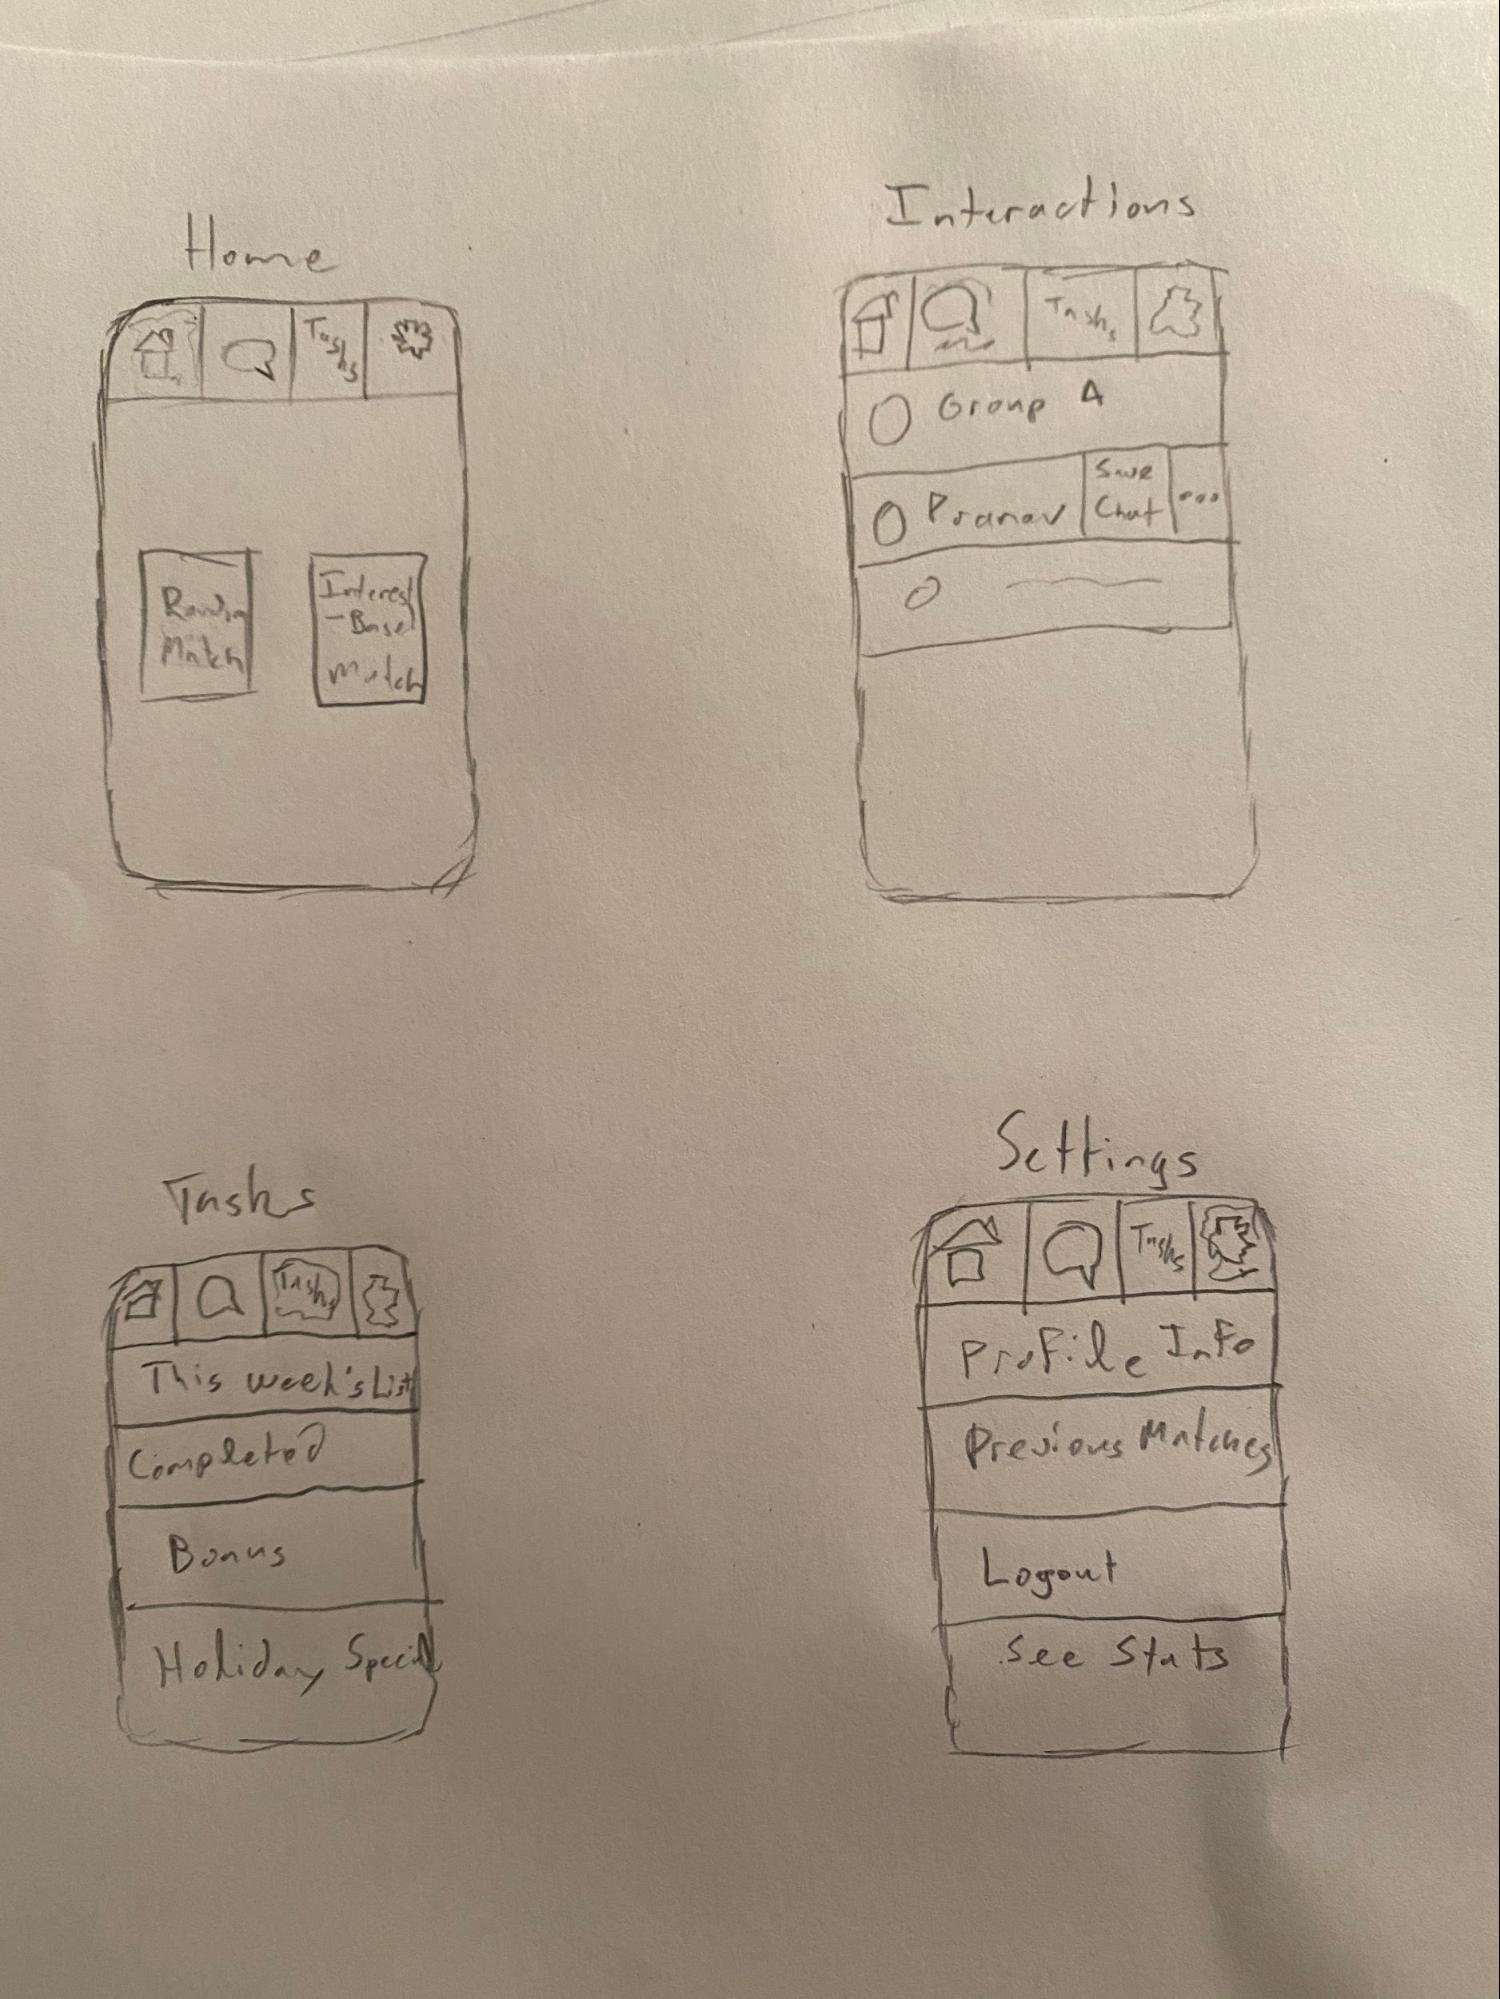 Home
Tasks
Random
Match
Interest
-Based
Match
Interactions
Tasks
Group 4
Pranav
Save
Chat
...
Tasks
Tasks
This week's List
Completed
Bonus
Holiday Special
Settings
Tasks
Profile Info
Previous Matches
Logout
See Stats